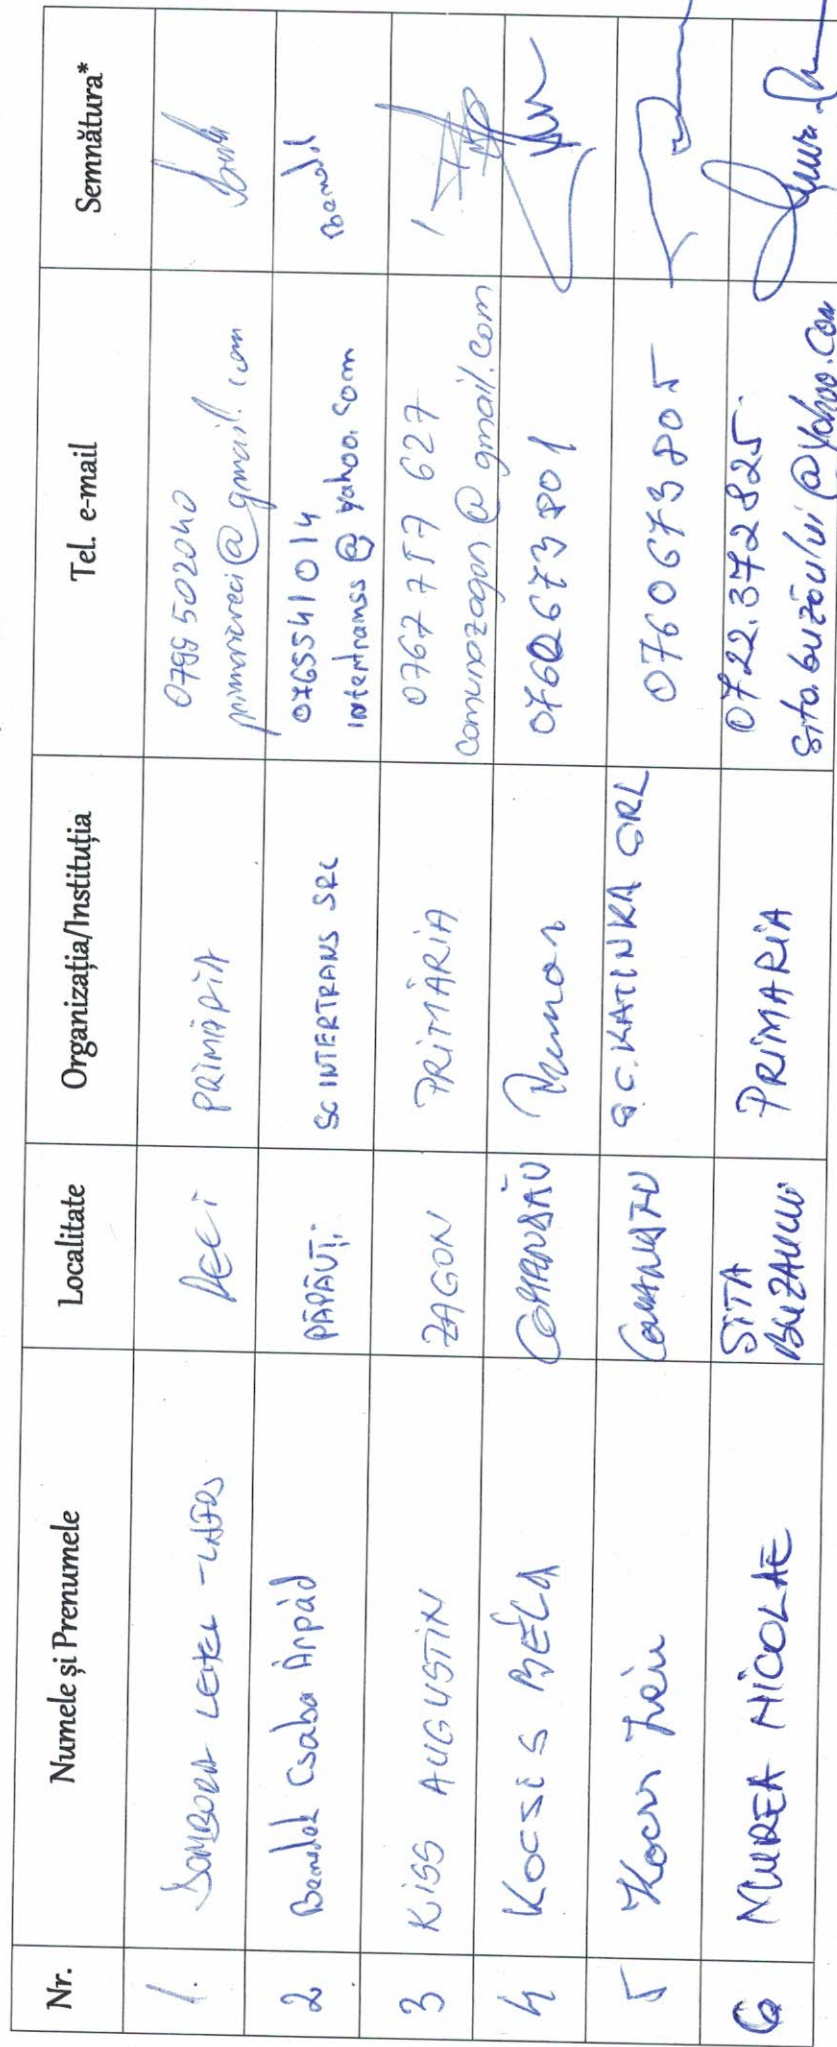 Nr. Numele și Prenumele Localitate Organizația/Instituția Tel. e-mail Semnătura*
1. RECI PRIMĂRIA 0799 502040
primariareci@gmail.com
2 Benedek Csaba Árpád PĂPĂUȚI SC INTERTRANS SRL 0765541014
intertranss@yahoo.com Benedek
3 KISS AUGUSTIN ZAGON PRIMĂRIA 0767 757 627
comunazagon@gmail.com
4 KOCSIS BÉLA COMANDĂU 0760673801
5 COMANDĂU S.C. KATINKA SRL 0760673805
6 MUREA NICOLAE SITA
BUZAULUI PRIMARIA 0722.372825.
sita.buzaului@yahoo.com